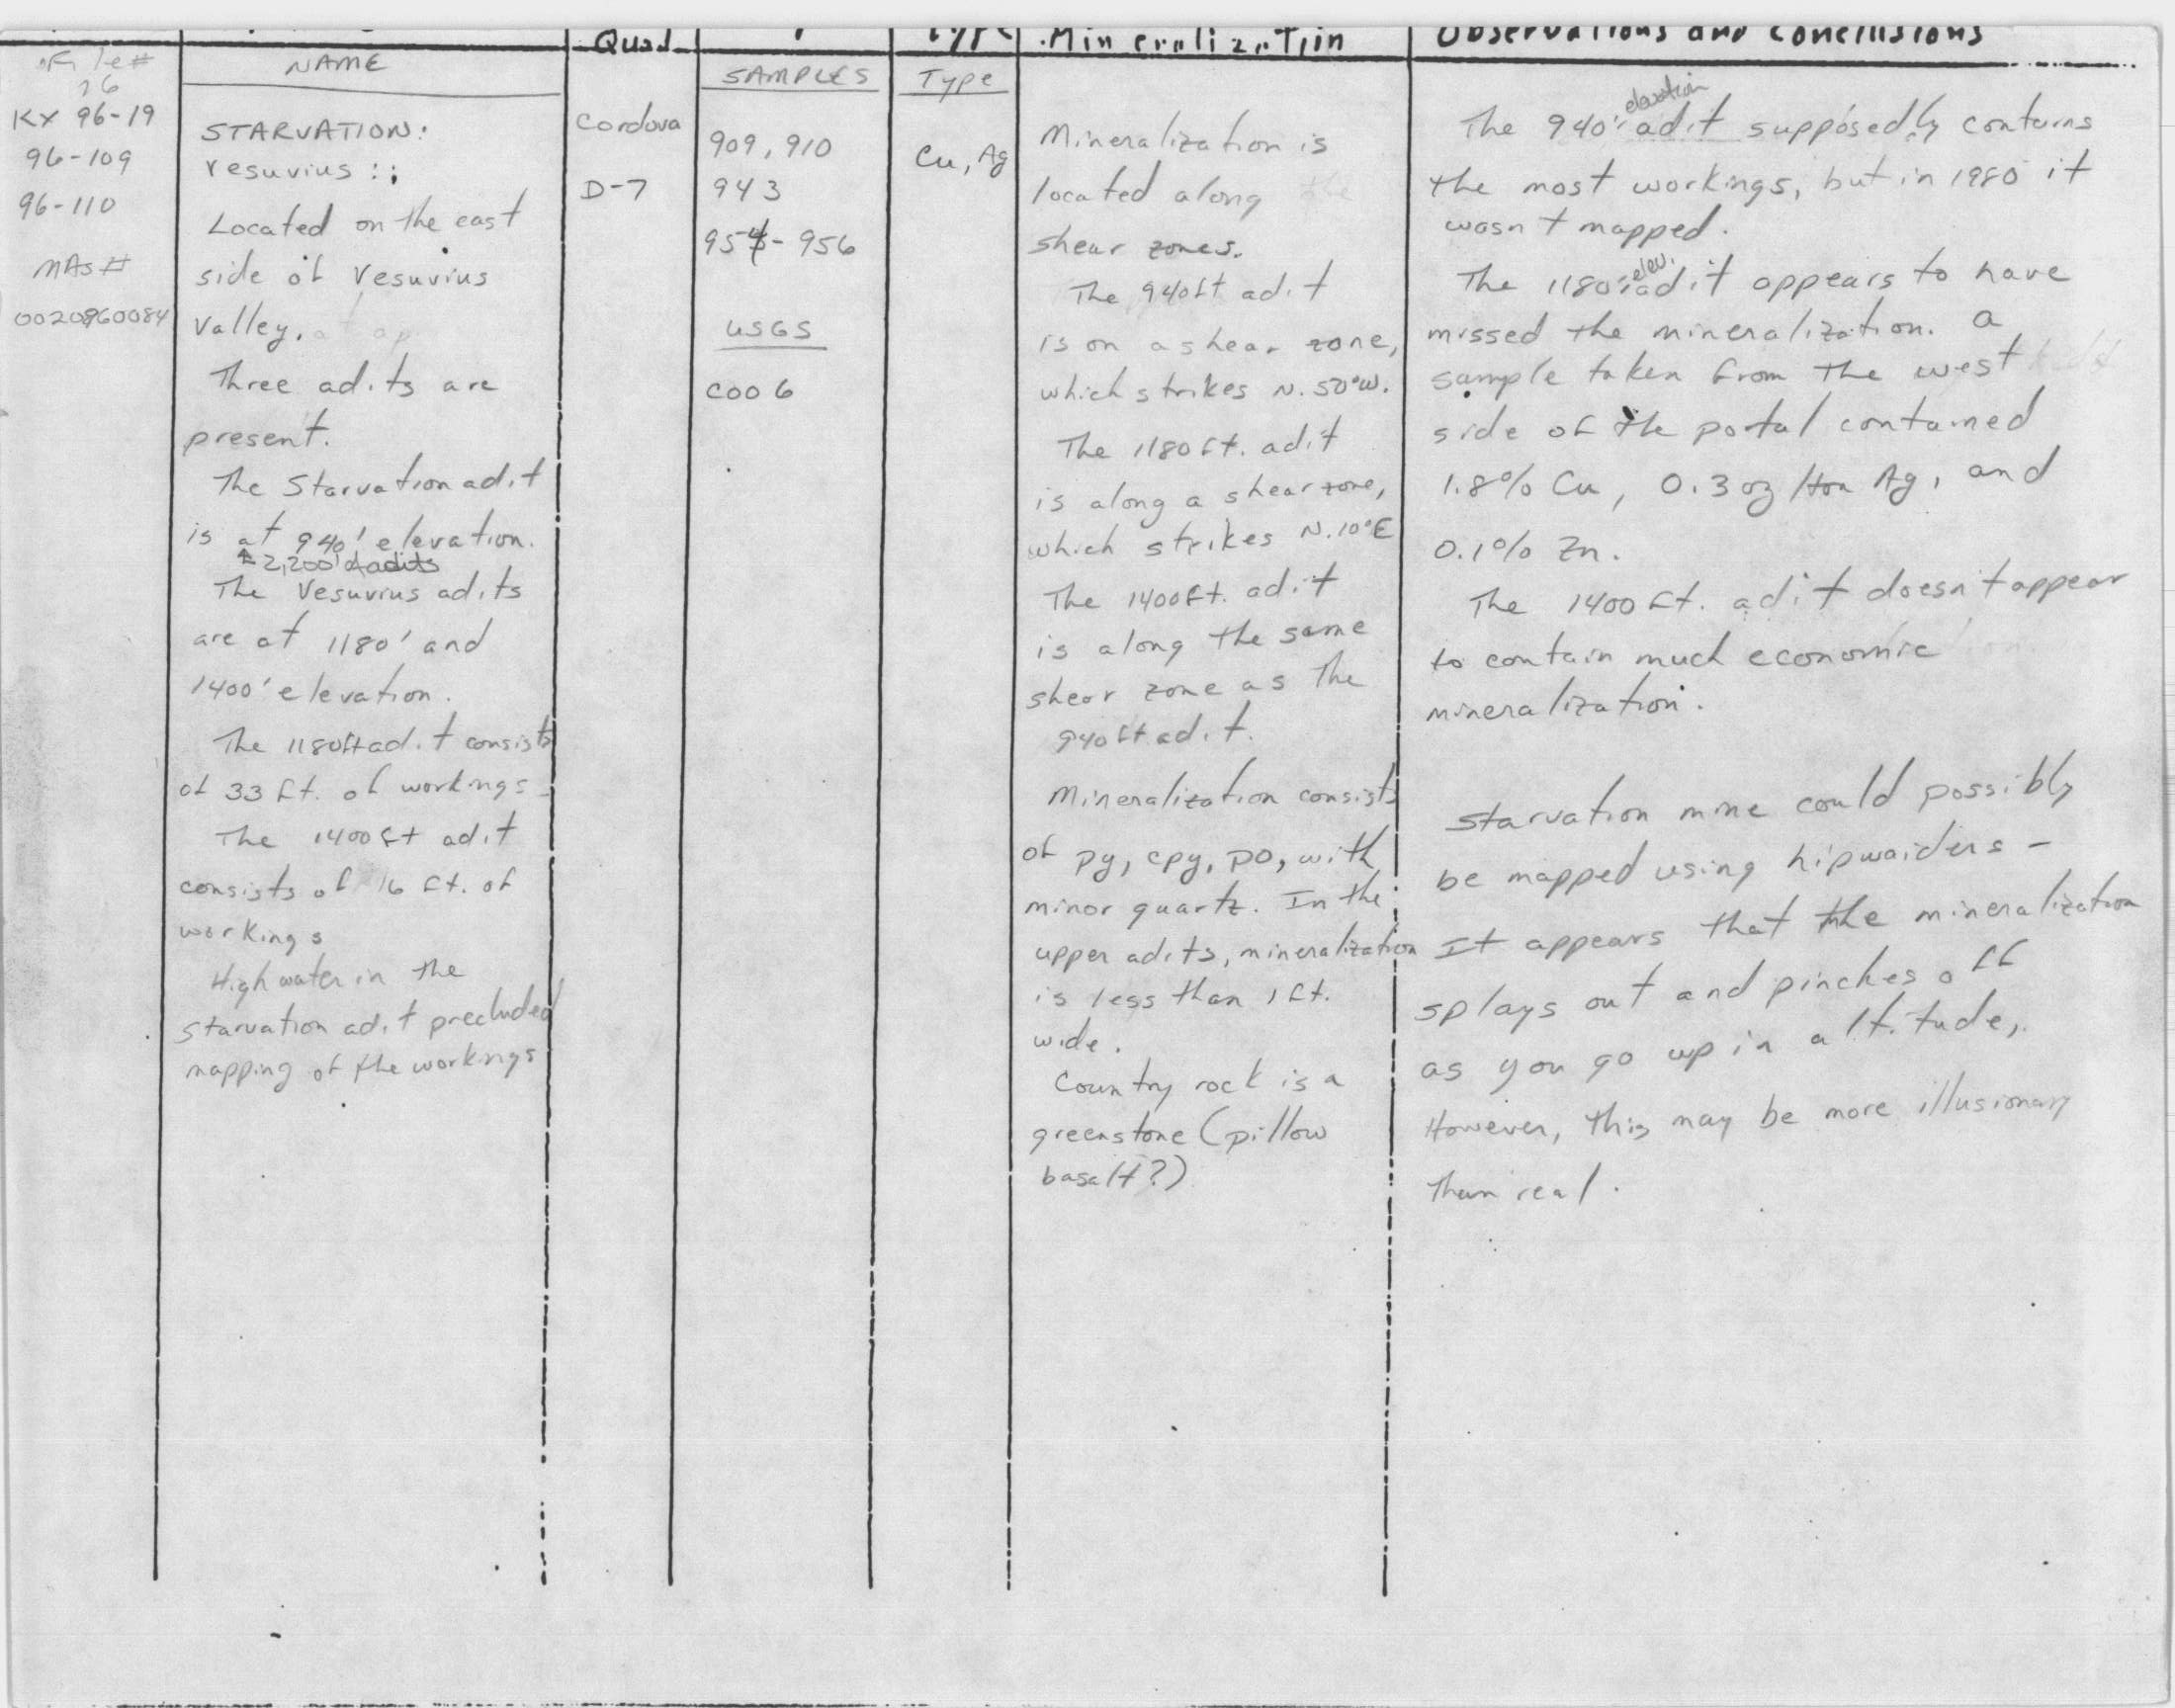 Quad
Type
Mineralization
Observations and Conclusions
File#
76
KX 96-19
96-109
96-110
MAS#
0020960084
NAME
STARVATION:
Vesuvius :;
Located on the east
side of Vesuvius
Valley.
Three adits are
present.
The Starvation adit
is at 940' elevation.
2,200' of adits
The Vesuvius adits
are at 1180' and
1400' elevation.
The 1180ft adit consists
of 33 ft. of workings
The 1400 ft adit
consists of 16 ft. of
workings
High water in the
starvation adit precluded
mapping of the workings
Cordova
D-7
SAMPLES
909, 910
943
954 - 956
USGS
C006
Type
Cu, Ag
Mineralization is
located along
shear zones.
The 940ft adit
is on a shear zone,
which strikes N. 50°W.
The 1180 ft. adit
is along a shear zone,
which strikes N. 10°E
The 1400ft. adit
is along the same
shear zone as the
940 ft adit.
Mineralization consists
of py, cpy, po, with
minor quartz. In the
upper adits, mineralization
is less than 1 ft.
wide.
Country rock is a
greenstone (pillow
basalt?)
elevation
The 940' adit supposedly contains
the most workings, but in 1980 it
wasn't mapped.
elev.
The 1180' adit appears to have
missed the mineralization. A
sample taken from the west
side of the portal contained
1.8% Cu, 0.3 oz/ton Ag, and
0.1% Zn.
The 1400 ft. adit doesn't appear
to contain much economic
mineralization.
Starvation mine could possibly
be mapped using hipwaiders -
It appears that the mineralization
splays out and pinches off
as you go up in altitude,
However, this may be more illusionary
than real.